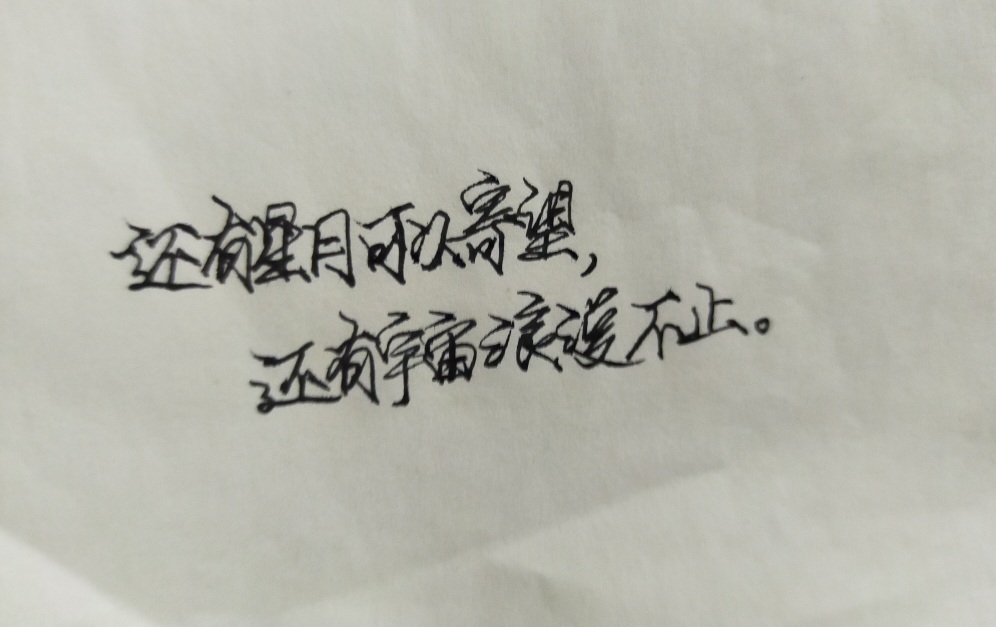 还有星月可以寄望，
还有宇宙浪漫不止。